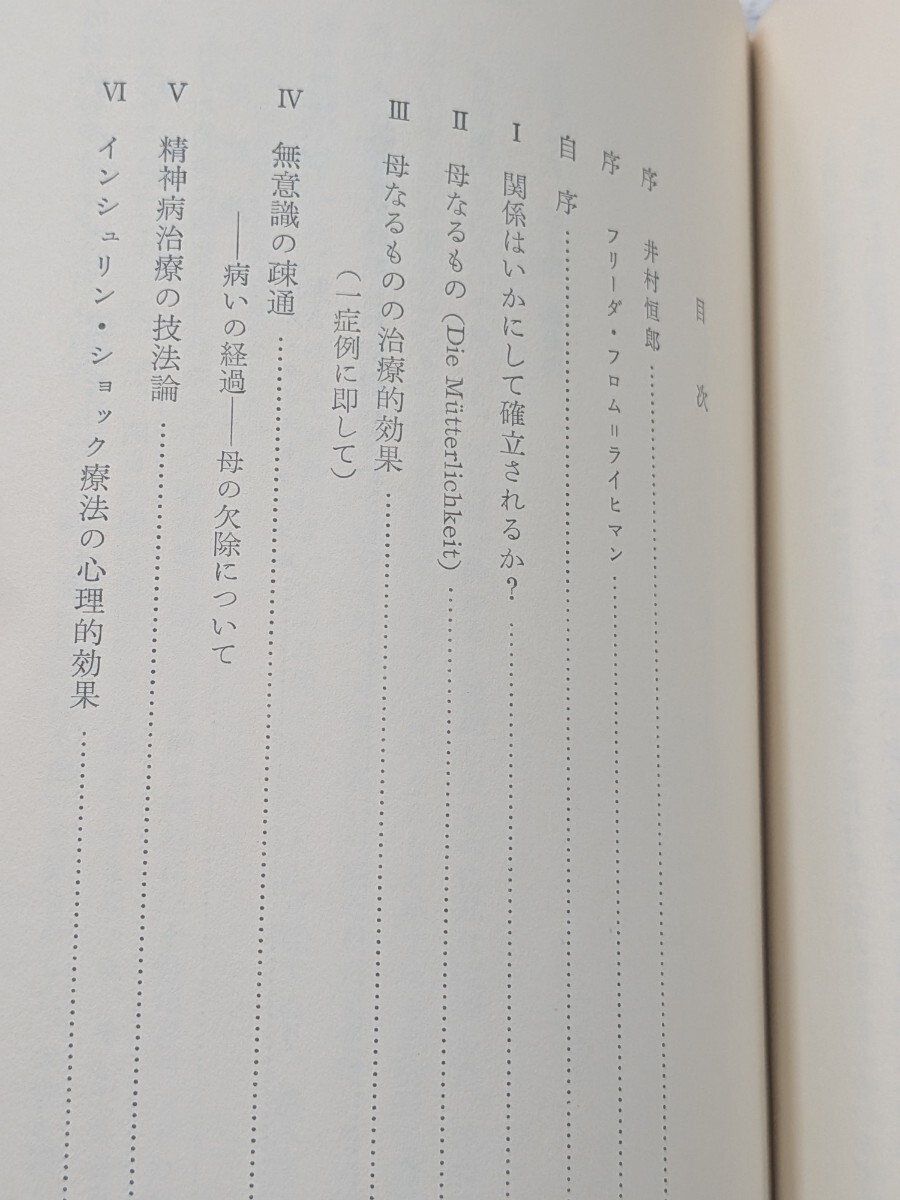 目次
序 井村恒郎……………………
序 フリーダ・フロム＝ライヒマン……………………
自序……………………
Ⅰ 関係はいかにして確立されるか？……………………
Ⅱ 母なるもの (Die Mütterlichkeit)……………………
Ⅲ 母なるものの治療的効果……………………
(一症例に即して)
Ⅳ 無意識の疎通……………………
――病いの経過――母の欠除について
Ⅴ 精神病治療の技法論……………………
Ⅵ インシュリン・ショック療法の心理的効果……………………